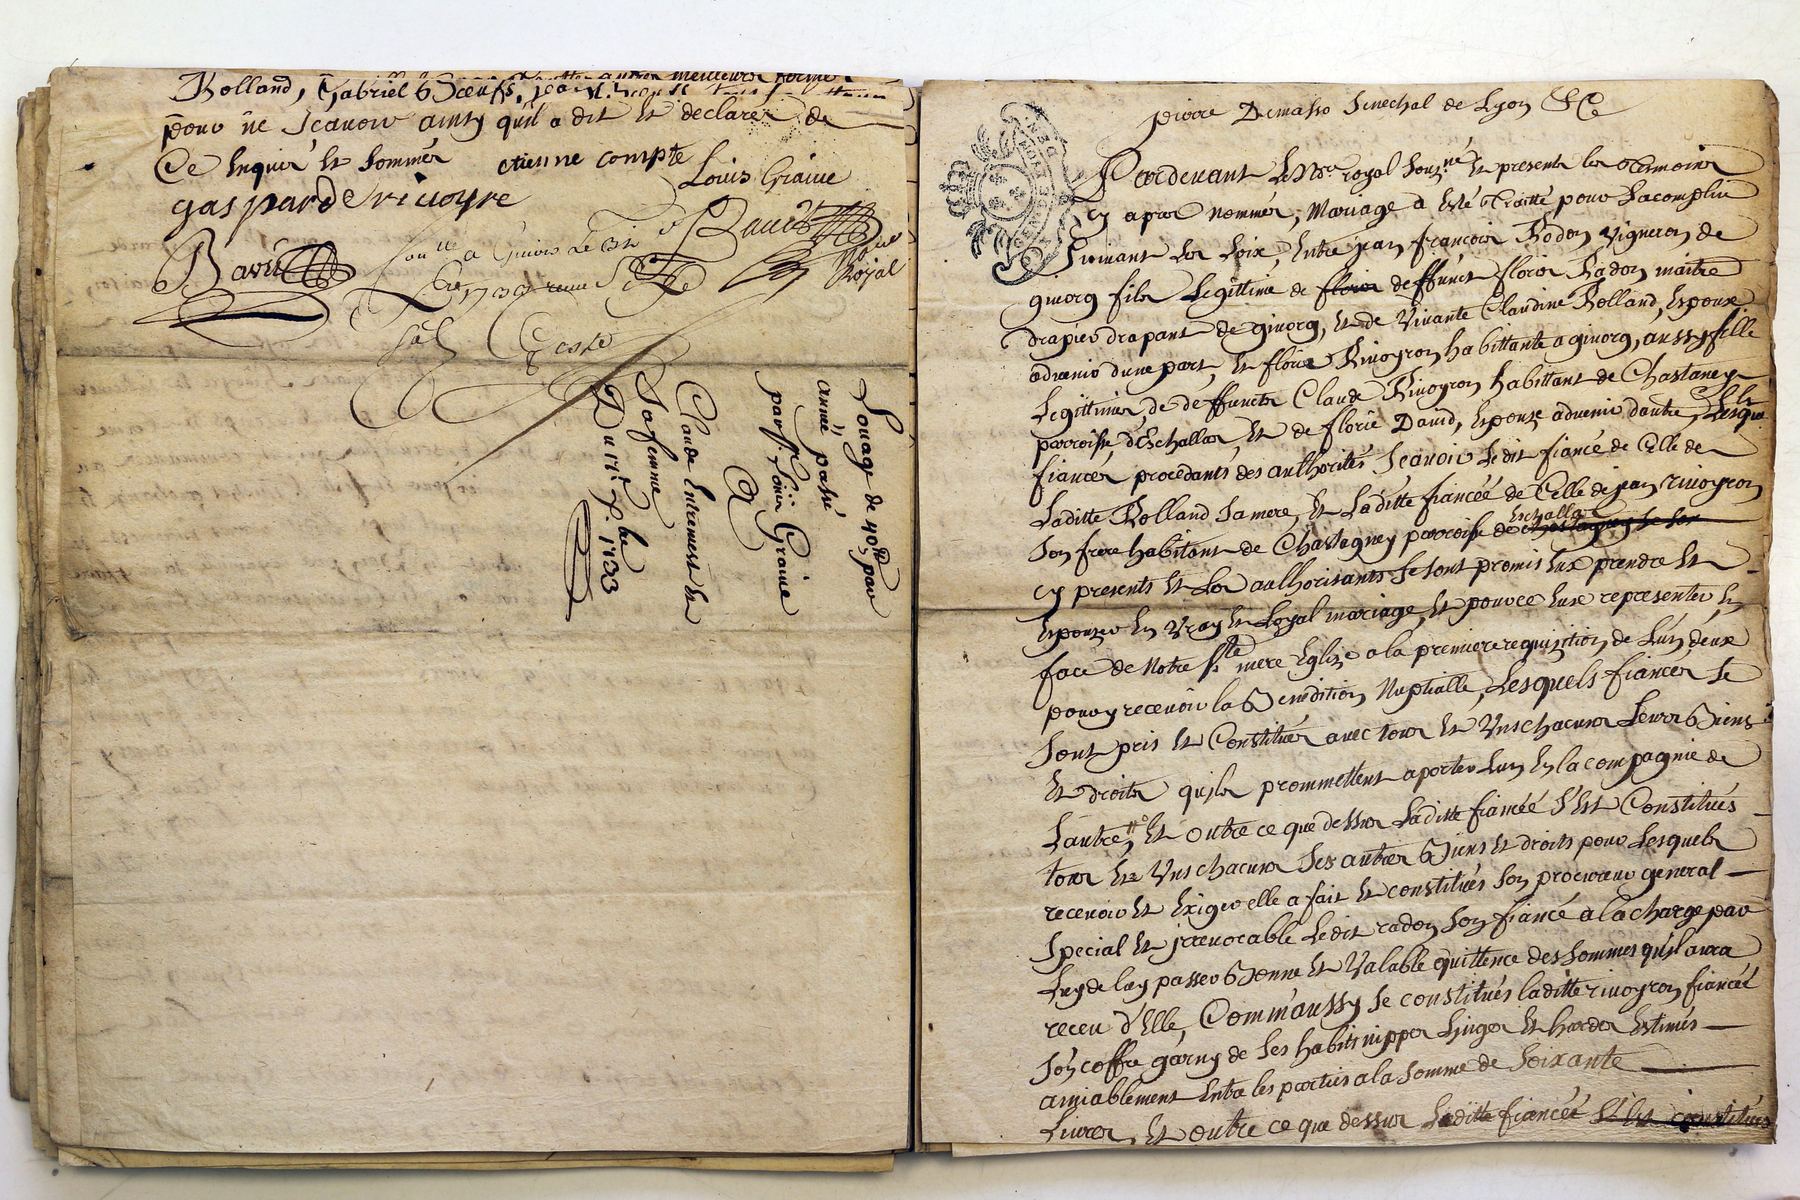 Rolland, Gabriel Bœufs,
pour ne Scavoir ainsy qu'il a dit Et declarer de
Ce Enquis Et Sommés etienne compte
Louis Graiue
gaspard Rivoyre
David
Royal
Louage de 40 ll par
année passé
par Sr. Loüis Graiue
A
Claude Entremest Et
Sa femme
Du 17e 7bre 1733
pierre Demasso Senechal de Lyon &c
GEN DE LYON
Pardevant Le No.re royal Sousné Et presents les tesmoins
Cy apres nommés, Mariage a Esté traitté pour Sacomplir
Suivant Les Loix, Entre jean françois Radon Vigneron de
givorg fils Legittime de deffunct floris Radon maitre
drapier drapant de givorg, Et de Vivante Claudine Rolland, Espoux
advenir dune part, Et florie Rivoyron habittante a givorg, aussy fille
Legittime de deffunct Claude Rivoyron habittant de Chastaney
parroisse d'Eschallas, Et de florie David, Espouse advenir dautre, Lesque
fiancés procedants des authorités Scavoir Ledit fiancé de Celle de
Laditte Rolland Sa mere, Et Laditte fiancée de Celle de jean rivoyron
Son frere habitant de Chastagney parroisse de Eschallas
cy presents Et Les authorisants Se sont promis Eux prendre Et
Espouser En Vray Et Loyal mariage, Et pour ce Eux representer En
face de Notre Ste mere Eglize a la premiere requisition de Lun deux
pour y recevoir la Benediction Nuptialle, Lesquels fiancés Se
Sont pris Et Constitués avec tous Et Uns chacuns Leurs Biens
Et droits quils prommettent aporter Lun En la compagnie de
Lautre, Et outre ce que dessus Laditte fiancée S'Est Constitués
tous Et Uns chacuns Ses autres Biens Et droits pour Lesquels
recevoir Et Exiger elle a fait Et constitués Son procureur general
Special Et jrrevocable Ledit radon Son fiancé a la charge par
Luy de Luy passer Bonne Et Valable quittence des Sommes quil aura
receu d'Elle, Comm'aussy Se constitués laditte rivoyron fiancée
Son coffre garny de Ses habits nippes Linges Et hardes Estimés
amiablement Entre les parties a la Somme de Soixante
Livres, Et outre ce que dessus Laditte fiancée S'Est constitués